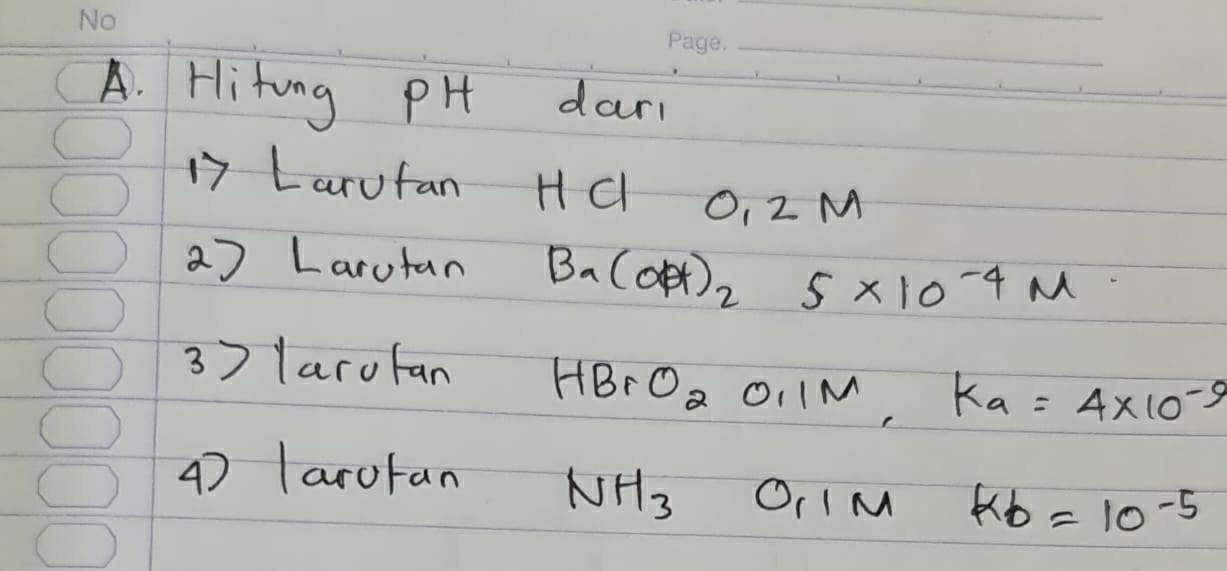 No
Page.
A. Hitung pH dari
1) Larutan HCl 0,2 M
2) Larutan Ba(OH)2 5 x 10^-4 M
3) larutan HBrO2 0,1 M, Ka = 4x10^-9
4) larutan NH3 0,1 M Kb = 10^-5